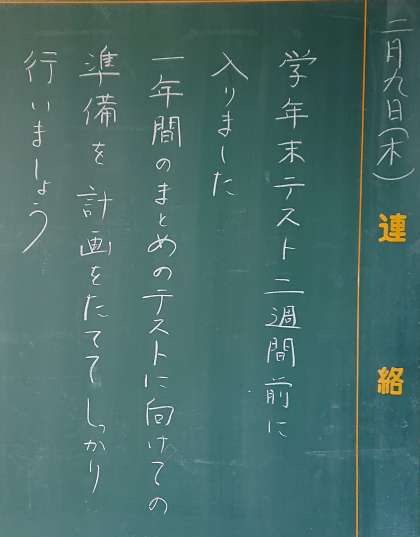 二月九日(木)
連絡
学年末テスト二週間前に
入りました
一年間のまとめのテストに向けての
準備を計画をたててしっかり
行いましょう